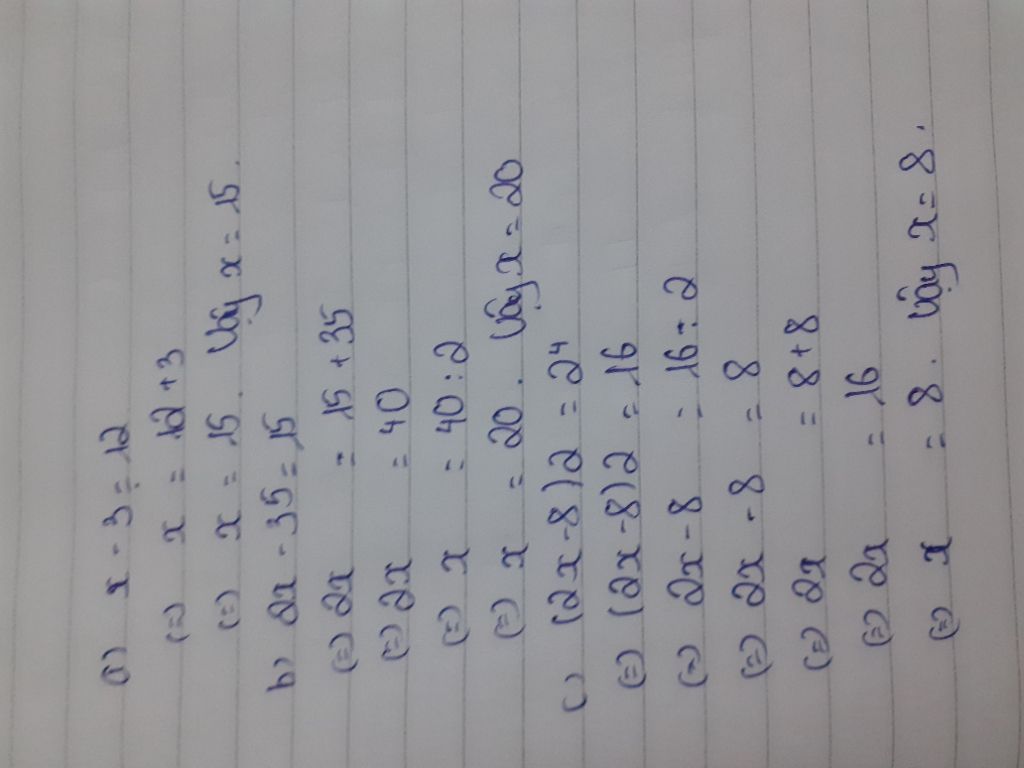 a) x - 3 = 12
(=) x = 12 + 3
(=) x = 15. Vậy x = 15.
b) 2x - 35 = 15
(=) 2x = 15 + 35
(=) 2x = 40
(=) x = 40 : 2
(=) x = 20. Vậy x = 20
c) (2x - 8) 2 = 2⁴
(=) (2x - 8) 2 = 16
(=) 2x - 8 = 16 : 2
(=) 2x - 8 = 8
(=) 2x = 8 + 8
(=) 2x = 16
(=) x = 8. Vậy x = 8.